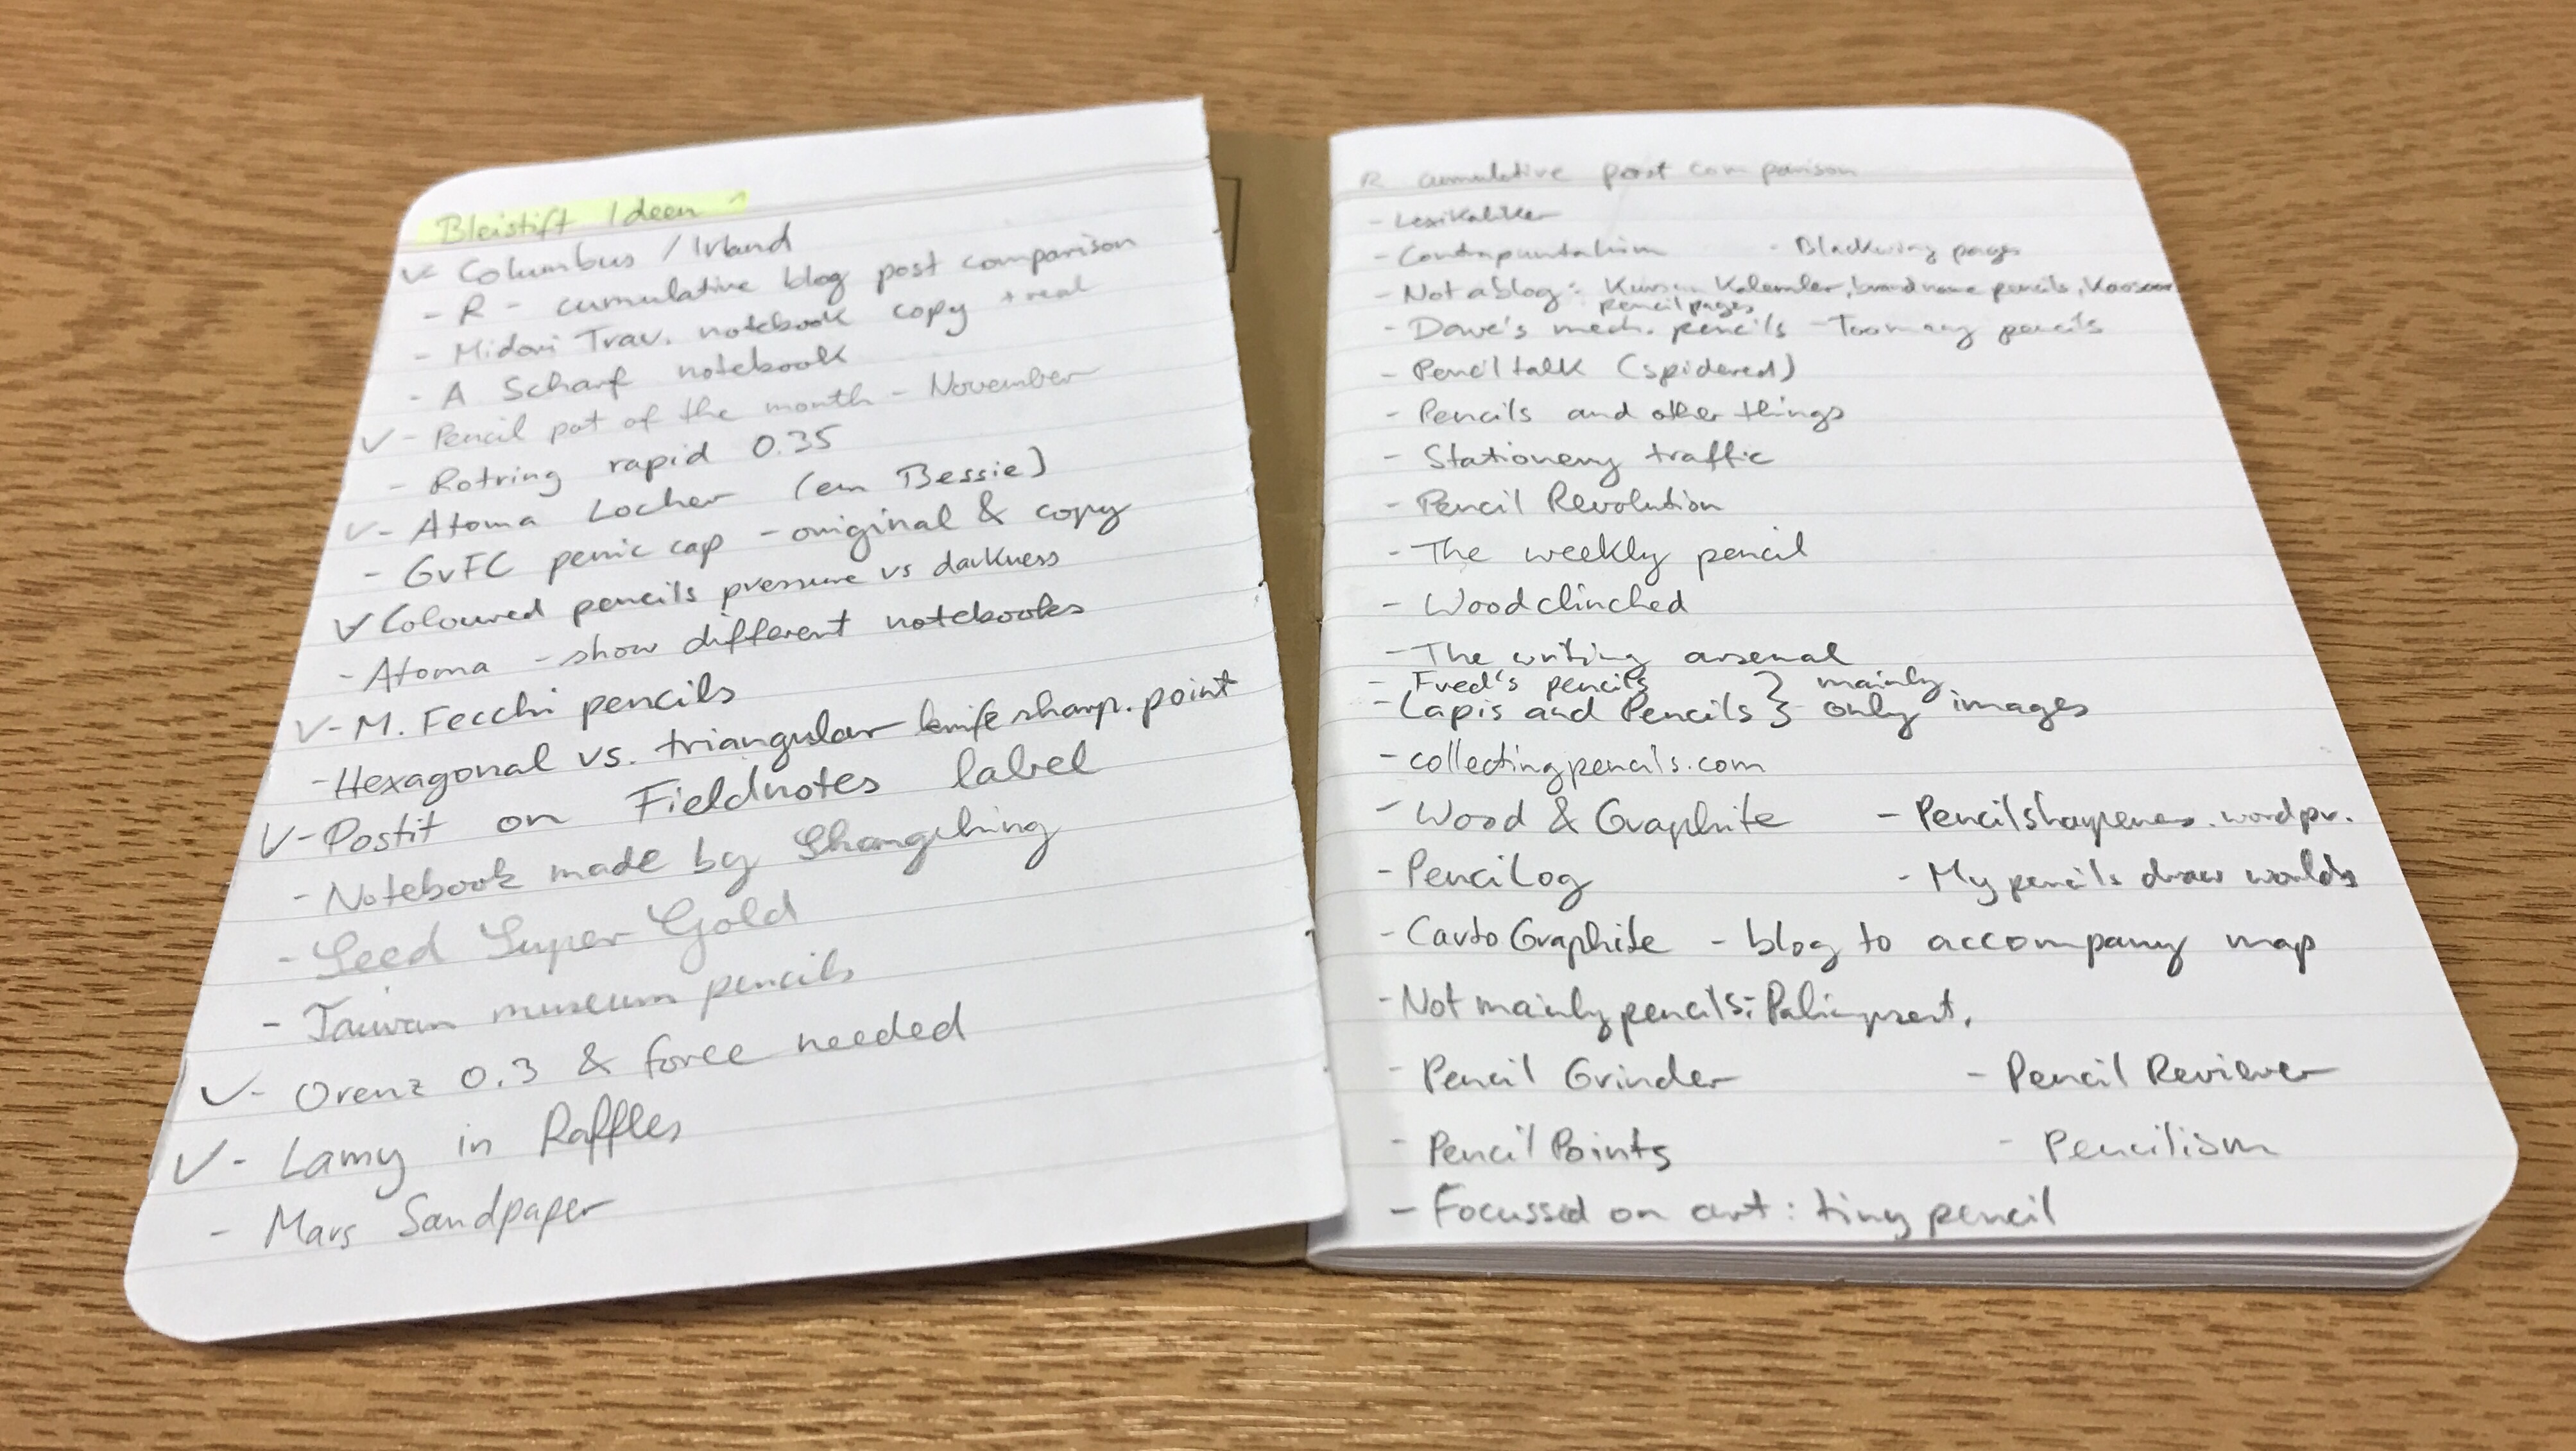 Bleistift Ideen 1
✓ Columbus / Irland
- R - cumulative blog post comparison
- Midori Trav. notebook copy + real
- A Scharf notebook
✓ - Pencil pot of the month - November
- Rotring rapid 0.35
✓ - Atoma Locher (em Bessie)
- GvFC pernic cap - original & copy
✓ Coloured pencils pressure vs darkness
- Atoma - show different notebooks
✓ - M. Fecchi pencils
- Hexagonal vs. triangular knife sharp. point
✓ - Postit on Fieldnotes label
- Notebook made by Shangching
- Seed Super Gold
- Taiwan museum pencils
✓ - Orenz 0.3 & force needed
✓ - Lamy in Raffles
- Mars Sandpaper
R cumulative post comparison
- Lexikaliker
- Contrapuntalism - Blackwing pages
- Not a blog: Kurşun Kalemler, brand name pencils,
pencil pages
- Dave's mech. pencils - Too many pencils
- Pencil talk (spidered)
- Pencils and other things
- Stationery traffic
- Pencil Revolution
- The weekly pencil
- Woodclinched
- The writing arsenal
- Fred's pencils } mainly
- Lapis and Pencils } only images
- collectingpencils.com
- Wood & Graphite - Pencilsharpener.wordpr.
- PenciLog - My pencils draw worlds
- CartoGraphite - blog to accompany map
- Not mainly pencils: Palimpsest,
- Pencil Grinder - Pencil Reviewer
- Pencil Points - Pencilism
- Focussed on art: tiny pencil